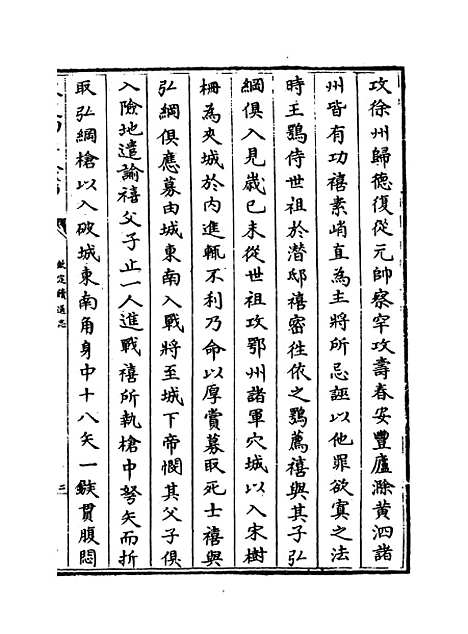 攻徐州歸德復從元帥察罕攻壽春安豐廬滁黄泗諸
州皆有功禧素峭直為主將所忌誣以他罪欲寘之法
時王鶚侍世祖於潛邸禧密徃依之鶚薦禧與其子弘
綱俱入見歲己未從世祖攻鄂州諸軍穴城以入宋樹
柵為夾城於內進輒不利乃命以厚賞募取死士禧與
弘綱俱應募由城東南入戰將至城下帝憫其父子俱
入險地遣諭禧父子止一人進戰禧所執槍中弩矢而折
取弘綱槍以入破城東南角身中十八矢一鏃貫腹悶
欽定續通志
三